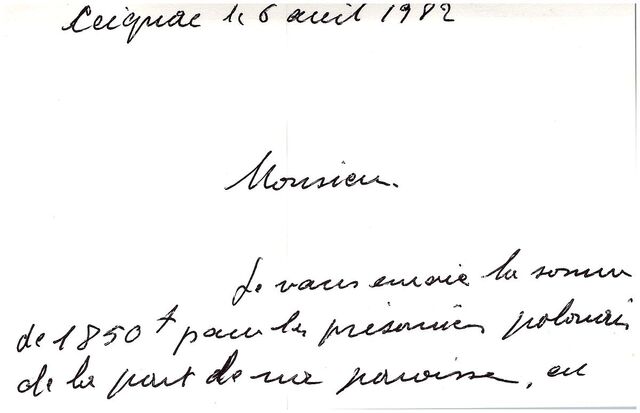 Ceignac le 6 avril 1982
Monsieur.
Je vous envoie la somme
de 1850f pour les prisonniers polonais
de la part de ma paroisse, en